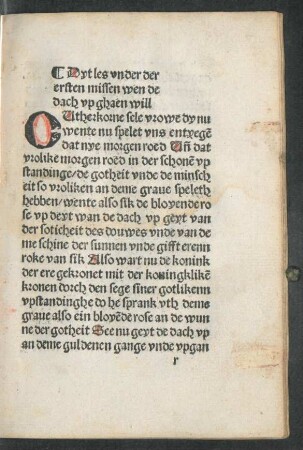 ¶ Dyt les vnder der
ersten missen wen de
dach vp ghaen will
OUtherkorne sele vrowe dy nu
wente nu spelet vns entyegē
dat nye morgen roed Uñ dat
vrolike morgen roed in der schonē vp
standinge/de gotheit vnde de minsch
eit so vroliken an deme graue speleth
hebben/wente also sik de bloyende ro
se vp deyt wan de dach vp geyt van
der soticheit des douwes vnde van de
me schine der sunnen vnde gifft erenn
roke van sik Also wart nu de konink
der ere gekronet mit der koninglikē
kronen dorch den sege siner gotlikenn
vpstandinghe do he sprank vth deme
graue also ein bloyēde rose an de wun
ne der gotheit See nu geyt de dach vp
an deme guldenen gange vnde vpgan
r